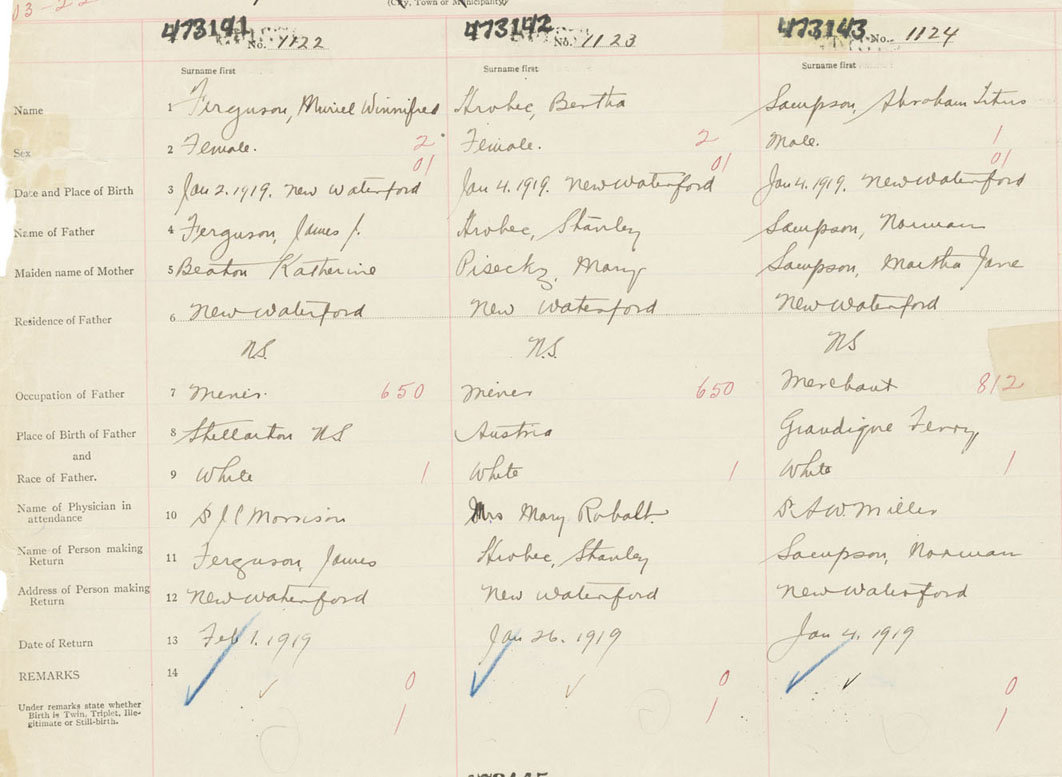 03-22
(City, Town or Municipality)
473191 473142 473143
No. 1122 No. 1123 No. 1124
Surname first Surname first Surname first
Name 1 Ferguson, Muriel Winnifred Hrobec, Bertha Sampson, Abraham Titus
Sex 2 Female. 2 Female. 2 Male. 1
01 01 01
Date and Place of Birth 3 Jan 2. 1919. New Waterford Jan 4. 1919. New Waterford Jan 4. 1919. New Waterford
Name of Father 4 Ferguson, James J. Hrobec, Stanley Sampson, Norman
Maiden name of Mother 5 Beaton Katherine Pisecky, Mary Sampson, Martha Jane
Residence of Father 6 New Waterford New Waterford New Waterford
NS. N.S. NS
Occupation of Father 7 Miner. 650 Miner 650 Merchant 812
Place of Birth of Father 8 Stellarton NS Austria Grandique Ferry
and
Race of Father. 9 White 1 White 1 White 1
Name of Physician in
attendance 10 Morrison Mrs Mary Rabalt. Dr A W. Miller
Name of Person making
Return 11 Ferguson, James Hrobec, Stanley Sampson, Norman
Address of Person making
Return 12 New Waterford New Waterford New Waterford
Date of Return 13 Feb 1. 1919 Jan 26. 1919 Jan 4. 1919
REMARKS 14
0 0 0
Under remarks state whether
Birth is Twin, Triplet, Ille-
gitimate or Still-birth.
1 1 1